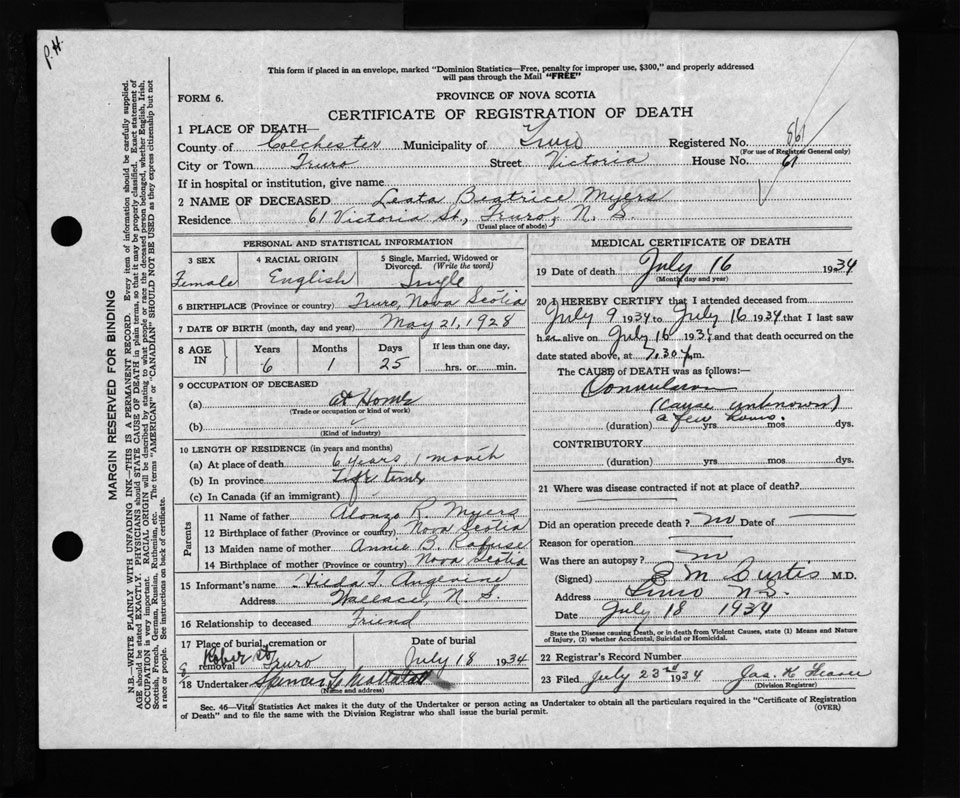 P.H.
This form if placed in an envelope, marked "Dominion Statistics—Free, penalty for improper use, $300," and properly addressed
will pass through the Mail "FREE"
FORM 6.
PROVINCE OF NOVA SCOTIA
CERTIFICATE OF REGISTRATION OF DEATH
1 PLACE OF DEATH—
County of Colchester Municipality of Truro Registered No. 861
(For use of Registrar General only)
City or Town Truro Street Victoria House No. 61
If in hospital or institution, give name
2 NAME OF DECEASED Leata Beatrice Myers
Residence 61 Victoria St, Truro, N. S.
(Usual place of abode)
PERSONAL AND STATISTICAL INFORMATION
3 SEX 4 RACIAL ORIGIN 5 Single, Married, Widowed or
Divorced. (Write the word)
Female English Single
6 BIRTHPLACE (Province or country) Truro, Nova Scotia
7 DATE OF BIRTH (month, day and year) May 21, 1928
8 AGE IN Years Months Days If less than one day,
6 1 25 hrs. or min.
9 OCCUPATION OF DECEASED
(a) at Home
(Trade or occupation or kind of work)
(b)
(Kind of industry)
10 LENGTH OF RESIDENCE (in years and months)
(a) At place of death 6 years, 1 month
(b) In province Life time
(c) In Canada (if an immigrant)
Parents
11 Name of father Alonzo R. Myers
12 Birthplace of father (Province or country) Nova Scotia
13 Maiden name of mother Annie B. Rafuse
14 Birthplace of mother (Province or country) Nova Scotia
15 Informant's name Hilda I. Angevine
Address Wallace, N. S.
16 Relationship to deceased Friend
17 Place of burial, cremation or removal Truro
Date of burial July 18 1934
18 Undertaker Spencer
(Name and address)
MEDICAL CERTIFICATE OF DEATH
19 Date of death July 16 1934
(Month, day and year)
20 I HEREBY CERTIFY that I attended deceased from
July 9 1934 to July 16 1934 that I last saw
her alive on July 16 193 and that death occurred on the
date stated above, at 7.30 m.
The CAUSE of DEATH was as follows:—
Convulsion
(Cause unknown)
(duration) a few hours. yrs mos dys.
CONTRIBUTORY
(duration) yrs mos dys.
21 Where was disease contracted if not at place of death?
Did an operation precede death? no Date of
Reason for operation
Was there an autopsy? no
(Signed) E M Curtis M.D.
Address Truro N.S.
Date July 18 1934
State the Disease causing Death, or in death from Violent Causes, state (1) Means and Nature
of Injury, (2) whether Accidental, Suicidal or Homicidal.
22 Registrar's Record Number
23 Filed July 23rd 1934 Jas. K
(Division Registrar)
Sec. 46—Vital Statistics Act makes it the duty of the Undertaker or person acting as Undertaker to obtain all the particulars required in the "Certificate of Registration
of Death" and to file the same with the Division Registrar who shall issue the burial permit.
(OVER)
MARGIN RESERVED FOR BINDING
N.B.—WRITE PLAINLY WITH UNFADING INK—THIS IS A PERMANENT RECORD. Every item of information should be carefully supplied.
AGE should be stated EXACTLY. PHYSICIANS should STATE CAUSE OF DEATH in plain terms, so that it may be properly classified. Exact statement of
OCCUPATION is very important. RACIAL ORIGIN will be described by stating to what people or race the deceased person belonged, whether English, Irish,
Scottish, French, German, Russian, Ruthenian, etc. The terms "AMERICAN" or "CANADIAN" SHOULD NOT BE USED as they express citizenship but not
a race or people. See instructions on back of certificate.